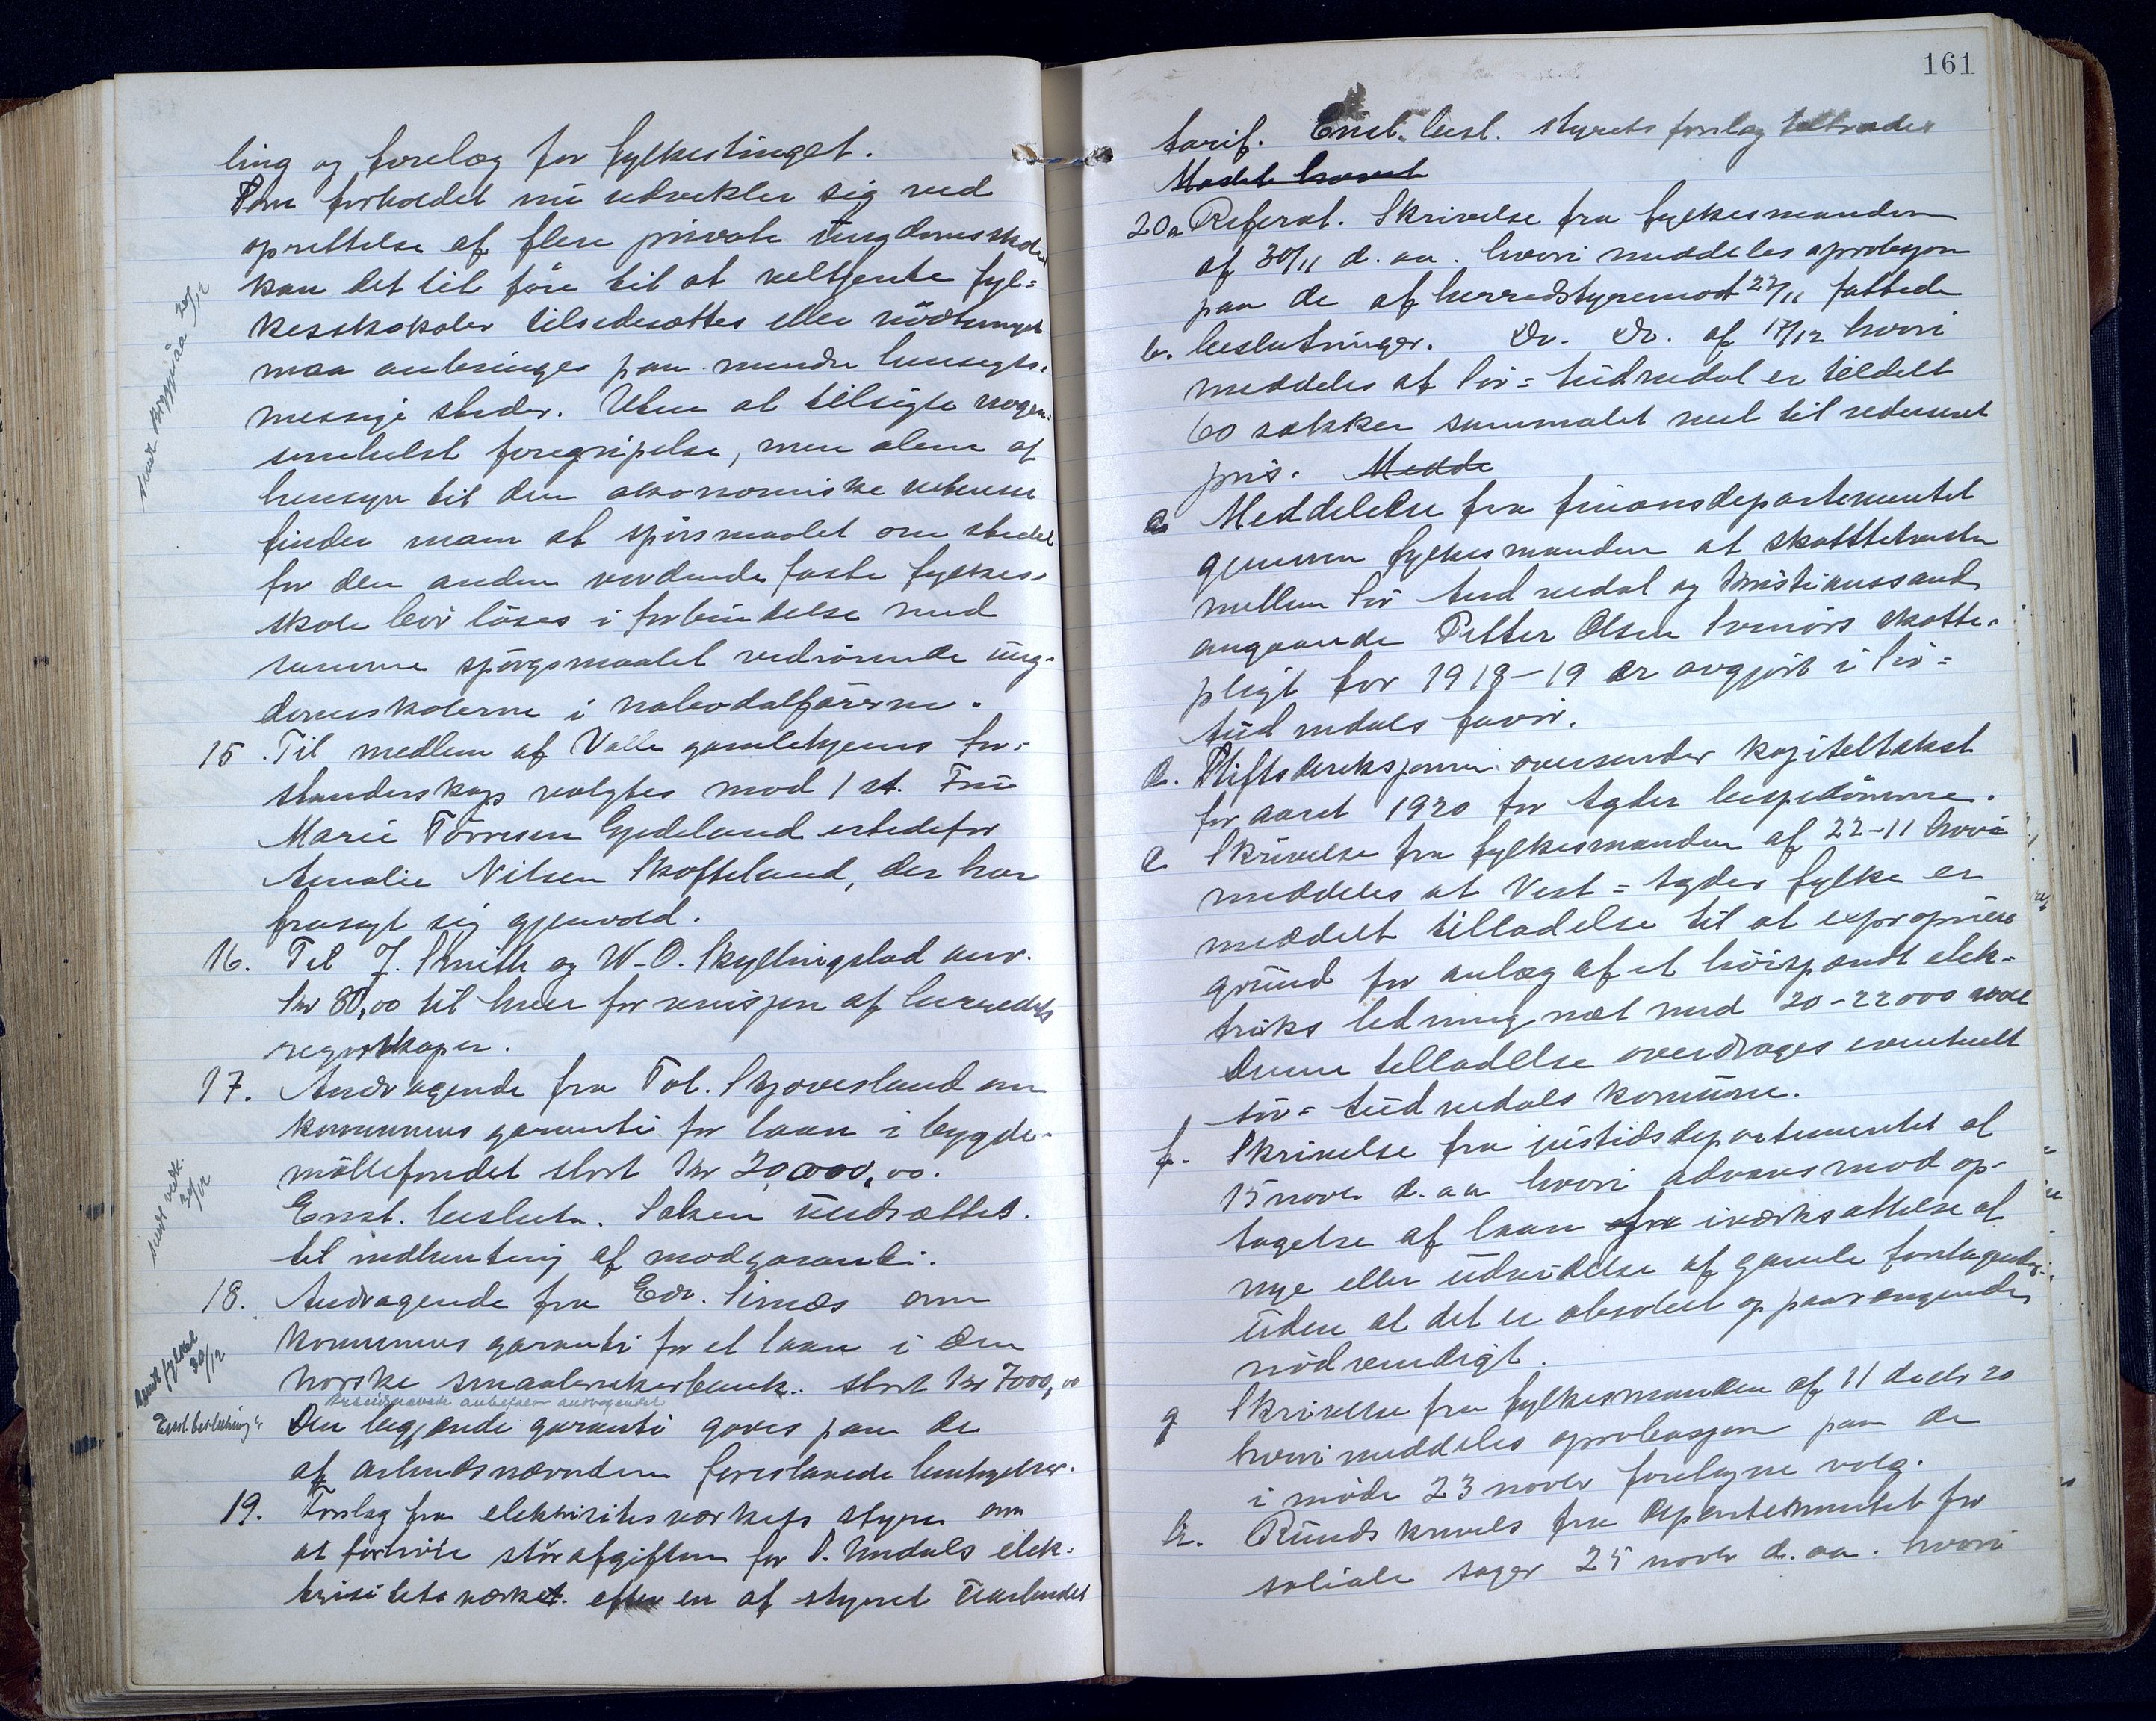 ling og forelæg for fylkestinget.
Som forholdet nu udvekler sig ved
oprettelse af flere private ungdomsskoler
kan det let føre til at veltjente fyl=
kesskokoler tilsidesættes eller nödtvunget
maa anbringes paa mindre hensigts=
messige steder. Uten at tilsigte nogen=
somhelst foregripelse, men alene af
hensyn til den økonomiske
finder man at spörsmaalet om stedet
for den anden vordende faste fylkes=
skole bör löses i forbindelse med
samme spörgsmaalet vedrörende ung=
domsskolerne i nabodalförerne.
15. Til medlem af Valle gamlehjems for=
standerskap valgtes mod 1 st. Fru
Marie Törresen Gjedeland istedefor
Amalie Nilsen Skofteland, der har
frasagt sig gjenvalg.
16. Til J. Smith og W. O. Skyllingstad anv.
kr 80,00 til hver for revisjon af herredets
regnskaper.
17. Andragende fra Tol. Skjævesland om
kommunens garanti for laan i bygde=
möllefondet stort kr 20,000,00.
Enst. beslutn. Saken utsættes
til indhenting af modgaranti.
18. Andragende fra Edv. Simæs om
kommunens garanti for et laan i Den
norske smaabrukerbank stort kr 7000,00
Arbeidsnævnde anbefaler andragendet
Enst. beslutning: Den begjærde garanti gaves paa de
af arbeidsnævnden foreslaaede betingelser.
19. Forslag fra elektrisitesværkets styre om
at forhöie störafgiften for S. Undals elek=
trisitetsværket efter en af styret utarbeidet
161
tarif. Enst. besl. styrets forslag tiltrædes
Mødet hævet
20a Referat. Skrivelse fra fylkesmanden
af 30/11 d. aa. hvori meddeles aprobasjon
paa de af herredstyremöt 22/11 fattede
b. beslutninger. Do. Do. af 17/12 hvori
meddeles at Sör=Audnedal er tildelt
60 sækker sammalet mel til redusert
pris. Medde
c. Meddelelse fra finansdepartementet
gjennem fylkesmanden at skattetvisten
mellem Sör Audnedal og Kristianssand
angaaende Petter Olsen Svinörs skatte=
pligt for 1918-19 er avgjört i Sör=
Audnedals favör.
d. Stiftsdireksjonen oversender kapiteltakst
for aaret 1920 for Agder bispedömme.
e Skrivelse fra fylkesmanden af 22-11 hvori
meddeles at Vest=Agder fylke er
meddelt tilladelse til at expropriere
grund for anlæg af et höispændt elek=
triks ledning næt med 20-22000 volt
Denne tilladelse overdrages eventuelt
Sör=Audnedals komune.
f. Skrivelse fra justisdepartementet af
15 novbr d. aa hvori advares mod op=
tagelse af laan iværksættelse af
nye eller udvidelse af gamle foretagender
uden at det er absolut og paatrængende
nödvendigt.
g Skrivelse fra fylkesmanden af 11 decbr 20
hvori meddeles aprobasjon paa de
i möde 23 novbr foretagne valg.
h. Rundskrivels fra departementet for
sosiale sager 25 novbr d. aa. hvori